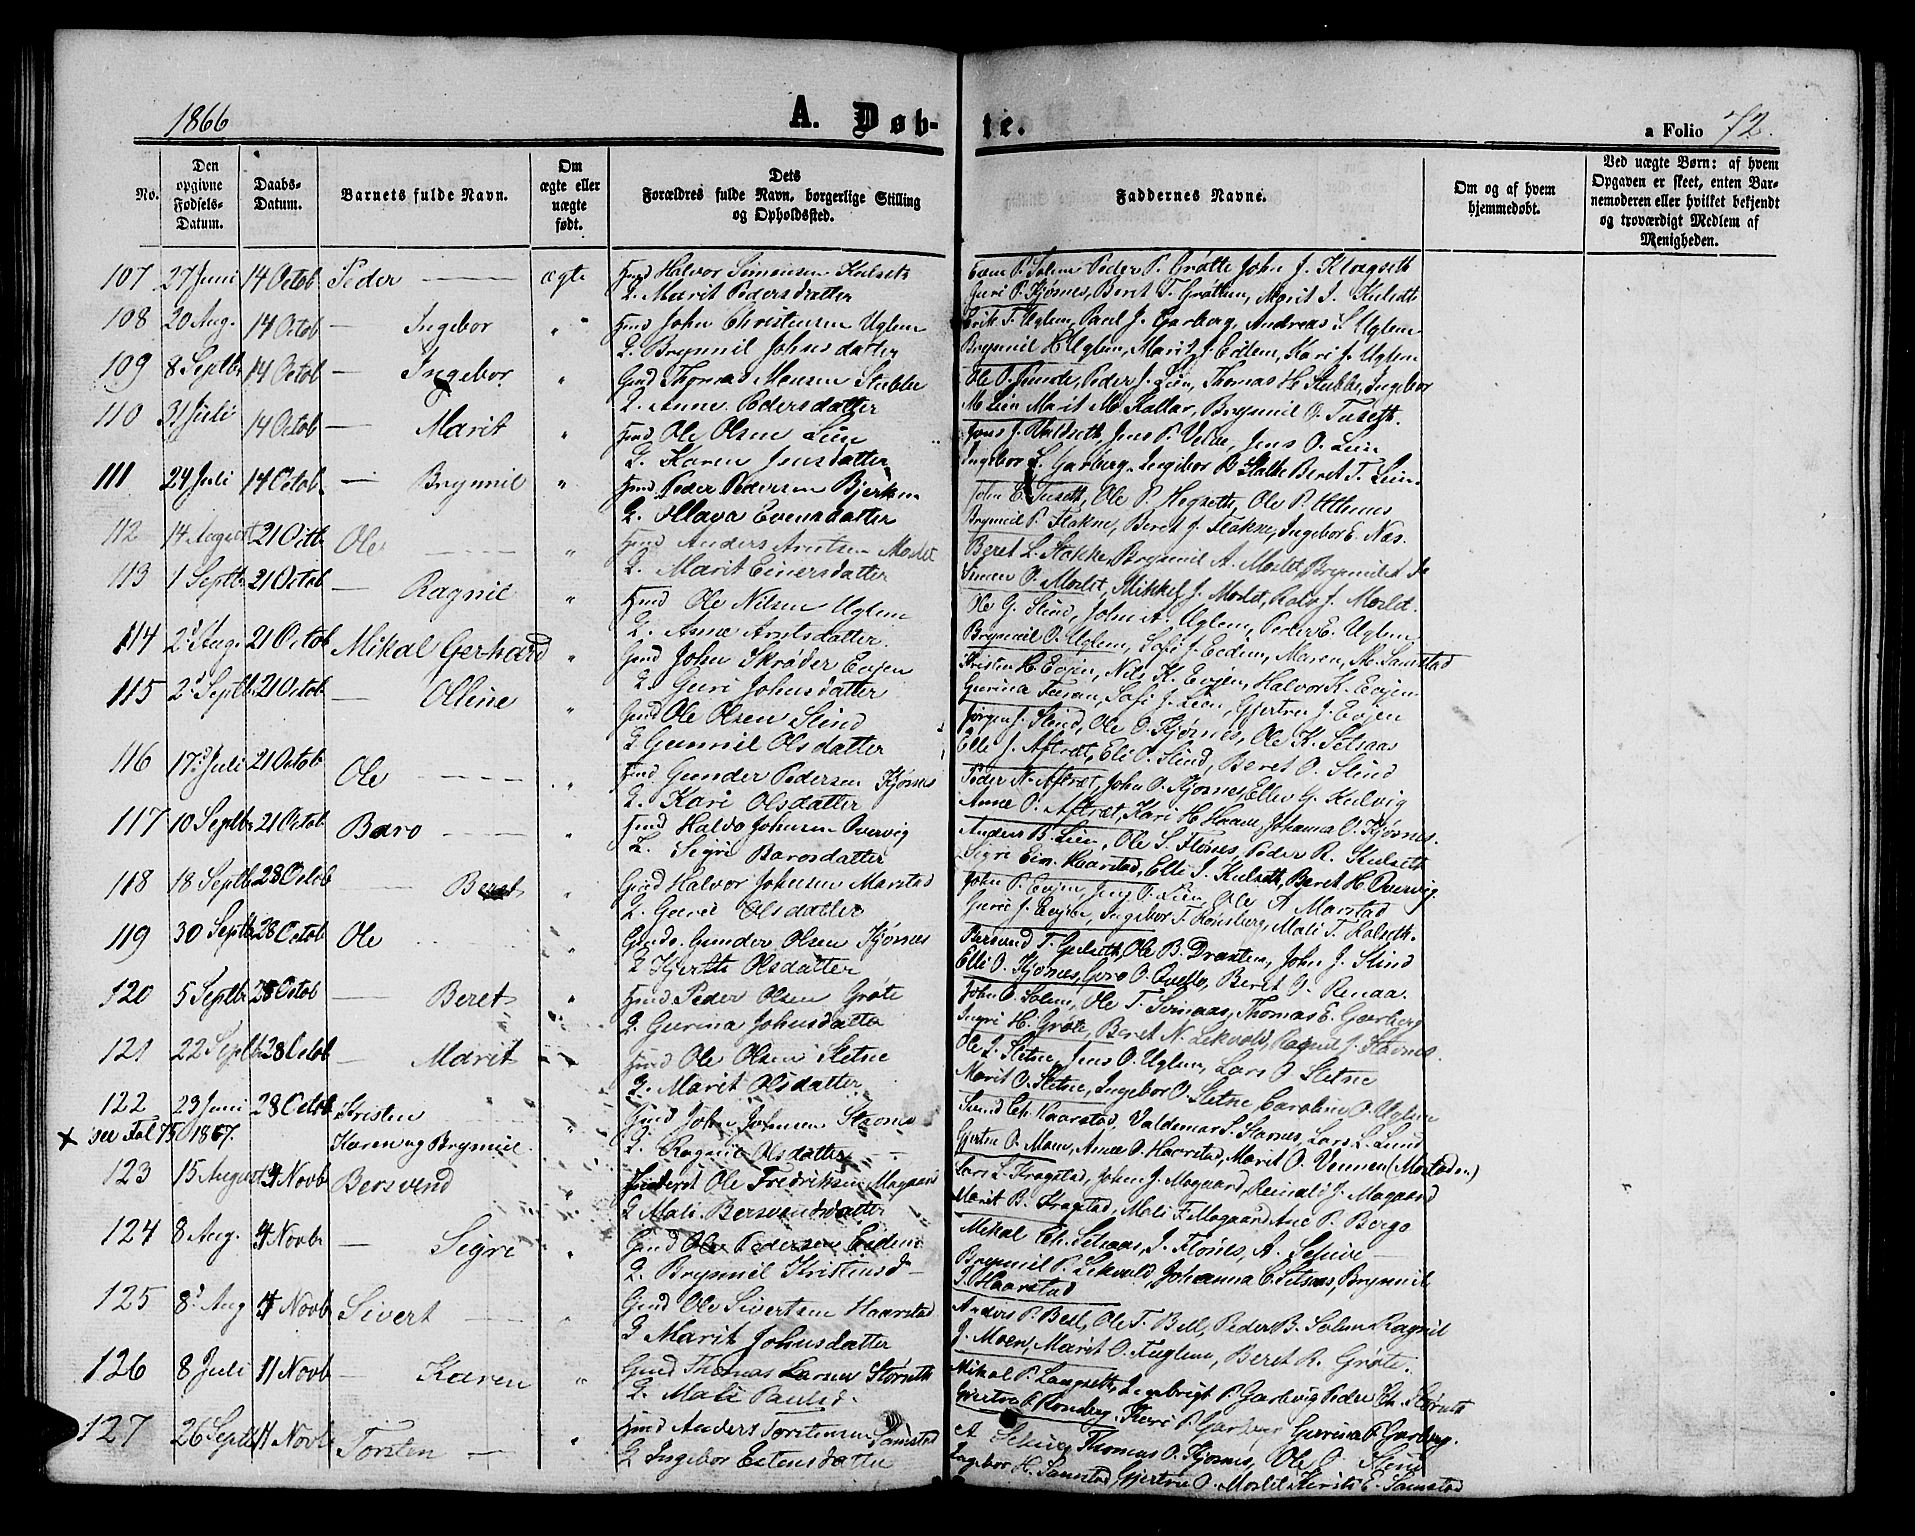 1866
A. Døb-te.
a Folio 72.
No.
Den opgivne Fødsels-Datum.
Daabs-Datum.
Barnets fulde Navn.
Om ægte eller uægte født.
Dets Forældres fulde Navn, borgerlige Stilling og Opholdsted.
Faddernes Navne.
Om og af hvem hjemmedøbt.
Ved uægte Børn: af hvem Opgaven er skeet, enten Barnemoderen eller hvilket bekjendt og troværdigt Medlem af Menigheden.
107 27 Juni 14 Octob Peder — ægte Hmd Halvor Simonsen Kulseth
2. Marit Pedersdatter
Even P. Solem Peder P. Grøtte John J. Kloegseth
Guri P. Kjøsnes, Beret T. Grøttem, Marit J. Kulseth
108 20 Aug. 14 Octob — Ingebor " Hmd John Christensen Uglem
2. Brynnil Johnsdatter
Erik T. Uglem, Paul J. Garberg, Andreas S. Uglem
Brynmil H Uglem, Marit J. Eidem, Kari J. Uglem
109 8 Septbr 14 Octob — Ingebor " Gmd Thomas Monsen Stubbe
2. Anne Pedersdatter
Ole O. Runde, Peder J. Lien, Thomas H. Stubbe, Ingebor
M Lien Marit M. Kallar, Brynmil O. Tuseth.
110 31 Juli 14 Octob — Marit " Hmd Ole Olsen Lien
2. Karen Jensdatter
Jens J. Huldseth, Jens P. Velve, Jens O. Lien
Ingebor L. Garberg, Ingebor B. Stokke Beret T. Lien.
111 24 Juli 14 Octob. — Brynmil " Hmd Peder Pedersen Bjerken
2. Olava Evensdatter
John E. Tuseth, Ole P. Hegseth, Ole P. Uthuus
Brynmil P. Flakne, Beret J. Flakne, Ingebor E. Næs.
112 14 August 21 Octb Ole — " Hmd Anders Arntsen Moslet
2. Marit Einersdatter
Beret L. Stokke, Brynmil A. Moslet, Brynmil
Simen O. Moslet, Mikkel J. Moslet, Rolv J. Moslet.
113 1 Septbr 21 Octob — Ragnil " Hmd Ole Nilsen Uglem
2. Anne Arntsdatter
Ole G. Slind, John A. Uglem, Peder E. Uglem
Brynmil O. Uglem, Sofi J. Eidem, Maren M. Samstad
114 2 Aug. 21 Octob Mikal Gerhard " Gmd John Skrøder Evjen
2. Guri Johnsdatter
Kristen H. Evjen, Nils K. Evjen, Halvor K. Evjen
Gurina Furan, Sofi J. Lien, Gjertru J. Evjen
115 2 Septb 21 Octob — Olline " Gmd Ole Olsen Slind
2 Gunnil Olsdatter
Jørgen J. Slind, Ole O. Kjøsnes, Ole K. Setsaas
Elli J. Aftret, Eli O. Slind, Beret O. Slind
116 17 Juli 21 Octob Ole — " Hmd Gunder Pedersen Kjøsnes
2. Kari Olsdatter
Peder N. Aftret, John O. Kjøsnes Ellev G. Kulvig
Anne O. Aftret, Kari H. Haave Johanna O. Kjøsnes.
117 10 Septbr 21 Octob Baro — " Hmd Haldo Johnsen Overvig
2. Sigri Barosdatter
Anders B. Lien, Ole S. Flønes, Peder R. Kulseth
Sigri Ein. Haarstad, Elli J. Kulseth, Beret H. Overvig
118 18 Septb 28 Octob — Beret " Gmd Halvor Johnsen Marstad
2. Guri Olsdatter
John P. Evjen, Jens O. Lien, Ole A Marstad
Guru J. Evjen, Ingebor T. Rønsberg, Mali T. Kalseth.
119 30 Septb 28 Octob Ole " Gmds. Gunder Olsen Kjøsnes
2 Kjersti Olsdatter
Bersvend T. Gulseth Ole B. Draxten, John J. Slind
Elli O. Kjøsnes, Guro O. Qvello, Beret O. Renaa.
120 5 Septbr 28 Octob — Beret " Hmd Peder Olsen Grøte
2. Gurina Johnsdatter
John O. Solem, Ole T. Sernaas, Thomas E. Garberg
Ingri H. Grøte, Beret N. Lekvold, Ragnil J. Stavnes.
121 22 Septb. 28 Octob — Marit Hmd Ole Olsen Sletne
2. Marit Olsdatter
Ole J. Sletne, Jens O. Uglem, Lars O. Sletne
Marit O. Sletne, Ingebor O. Sletne Caroline O. Uglem
122 23 Juni 28 Octob Kristen " Hmd John Johnsen Stavnes
x see Fol 75 1867. Karen og Brynmil 2. Ragnil Olsdatter —
Svend Ch. Haarstad, Valdemar S. Stavnes, Lars L. Lund
Gjertru O. Moen, Anne O. Haarstad, Marit O. Vennen (Mostaden)
123 15 August 4 Novb Bersvend " Inderst Ole Fredriksen Mogaard
2 Mali Bersvendsdatter
Lars L. Kragstad, John J. Mogaard, Reinald J. Mogaard
Marit B. Kragstad, Mali F. Mogaard Ane P. Berge
124 8 Aug. 4 Novbr — Sigri " Gmd Ole Pedersen Eidem
2. Brynmil Kristensd—
Mikal Ch. Setsaas, J. Flønes, A. Schive —
Brynmil P. Lekvold, Johanna C. Setsaas, Brynmil
J Haarstad
125 8 Aug 4 Novbr Sivert — Gmd Ole Sivertsen Haarstad
2 Marit Johnsdatter
Anders P. Bell, Ole T. Bell, Peder B. Solem Ragnil
J. Moen, Marit O. Fuglem, Beret R. Grøte.
126 8 Juli 11 Novb — Karen " Gmd Thomas Larsen Størseth
2. Mali Paulsd.
Mikal P. Langseth, Ingebrigt P. Garberg Peder Ch. Størseth
Gjertru P. Ronsberg, Kari P. Garberg Gurina P. Garberg.
127 26 Septb 11 Novb Torsten — " Hmd Anders Torstensen Samstad
2 Ingebor Estensdatter
A Schive Thomas O. Kjøsnes, Ole O. Slind
Ingebor H. Samstad, Gjertru O. Moslet Kirsti E. Samstad